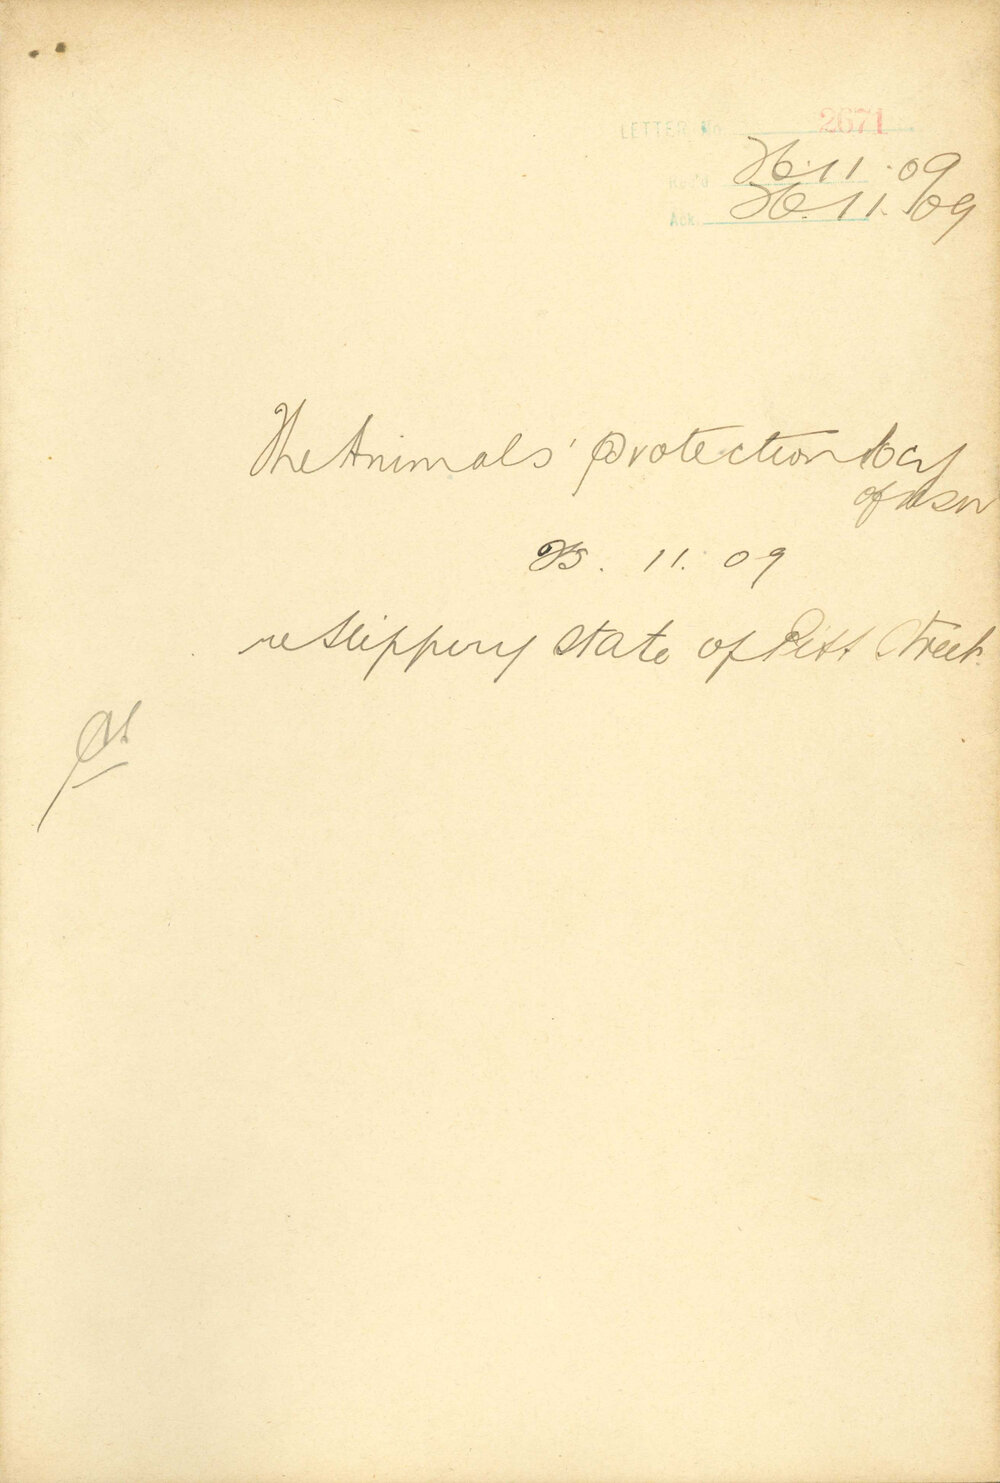 LETTER No. 2671
Rec'd 26.11.09
Ack. 26.11.09
The Animals' Protection Socy
of NSW
25. 11. 09
re Slippery State of Pitt Street.